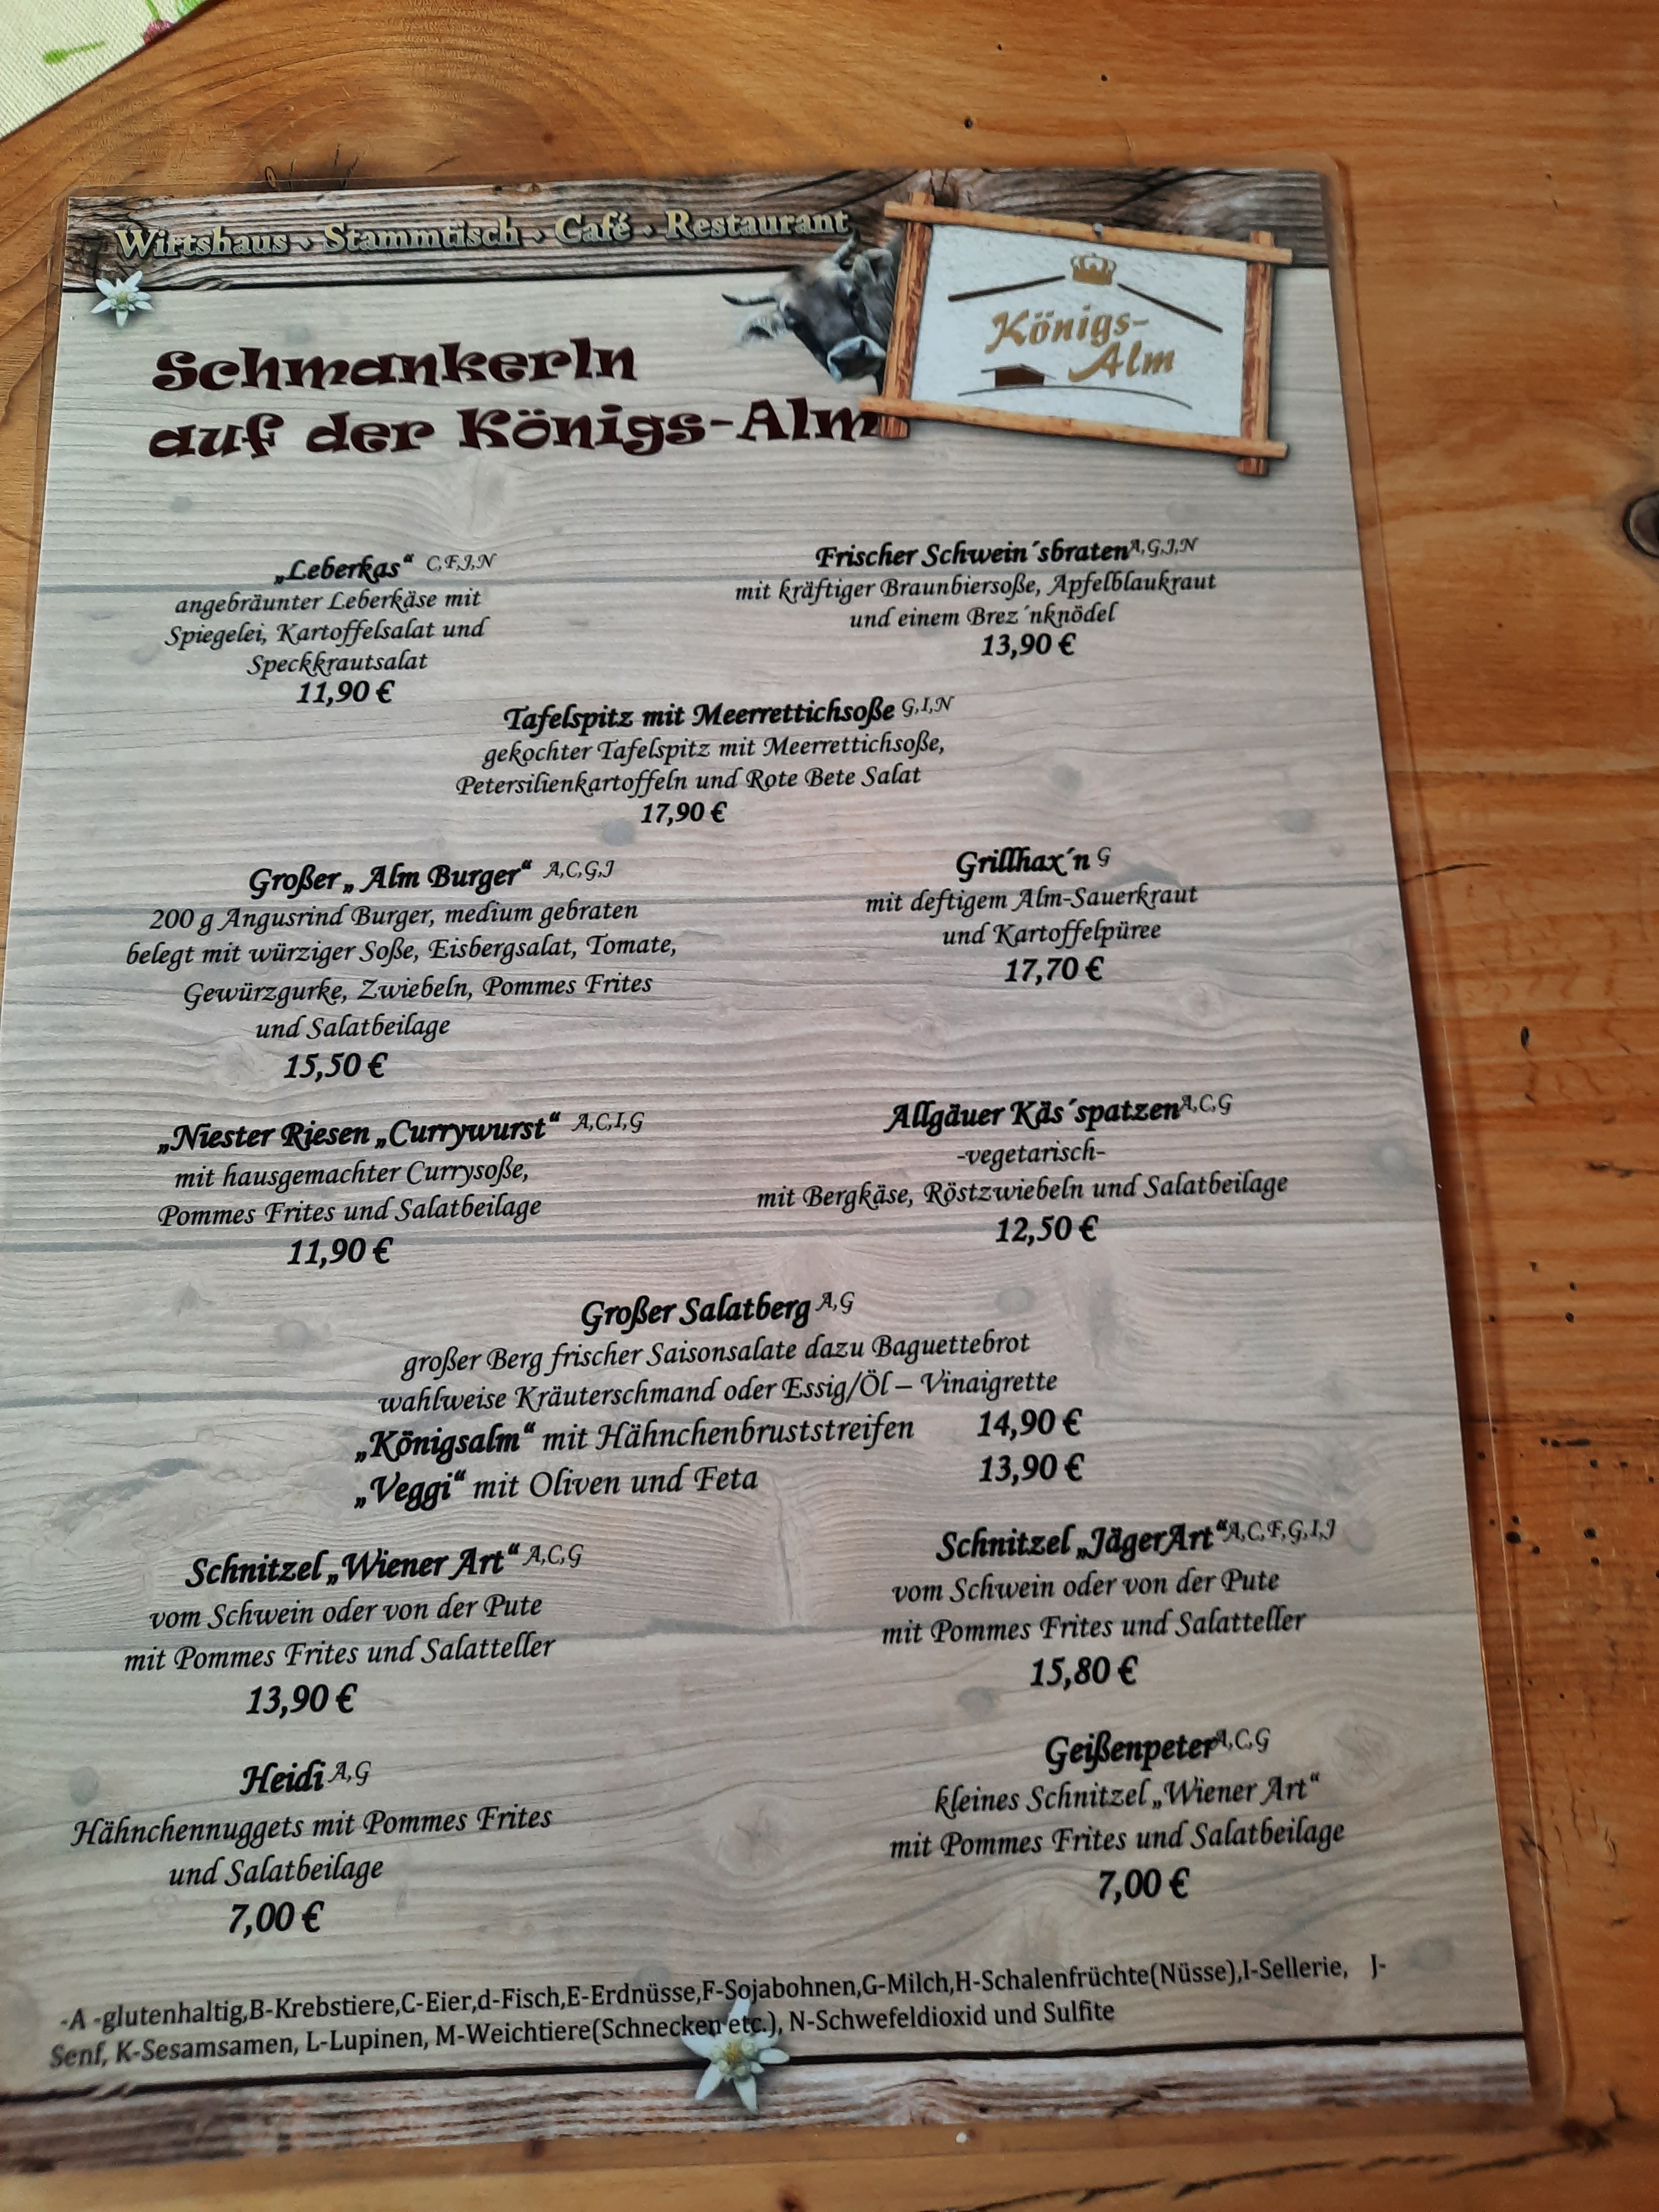 Wirtshaus • Stammtisch • Café • Restaurant
Königs-
Alm
Schmankerln
auf der Königs-Alm
„Leberkas“ C,F,J,N
angebräunter Leberkäse mit
Spiegelei, Kartoffelsalat und
Speckkrautsalat
11,90 €
Frischer Schwein´sbraten A,G,J,N
mit kräftiger Braunbiersoße, Apfelblaukraut
und einem Brez´nknödel
13,90 €
Tafelspitz mit Meerrettichsoße G,I,N
gekochter Tafelspitz mit Meerrettichsoße,
Petersilienkartoffeln und Rote Bete Salat
17,90 €
Großer „ Alm Burger“ A,C,G,J
200 g Angusrind Burger, medium gebraten
belegt mit würziger Soße, Eisbergsalat, Tomate,
Gewürzgurke, Zwiebeln, Pommes Frites
und Salatbeilage
15,50 €
Grillhax´n G
mit deftigem Alm-Sauerkraut
und Kartoffelpüree
17,70 €
„Niester Riesen „Currywurst“ A,C,I,G
mit hausgemachter Currysoße,
Pommes Frites und Salatbeilage
11,90 €
Allgäuer Käs´spatzen A,C,G
-vegetarisch-
mit Bergkäse, Röstzwiebeln und Salatbeilage
12,50 €
Großer Salatberg A,G
großer Berg frischer Saisonsalate dazu Baguettebrot
wahlweise Kräuterschmand oder Essig/Öl – Vinaigrette
„Königsalm“ mit Hähnchenbruststreifen 14,90 €
„Veggi“ mit Oliven und Feta 13,90 €
Schnitzel „Wiener Art“ A,C,G
vom Schwein oder von der Pute
mit Pommes Frites und Salatteller
13,90 €
Schnitzel „JägerArt“ A,C,F,G,I,J
vom Schwein oder von der Pute
mit Pommes Frites und Salatteller
15,80 €
Heidi A,G
Hähnchennuggets mit Pommes Frites
und Salatbeilage
7,00 €
Geißenpeter A,C,G
kleines Schnitzel „Wiener Art“
mit Pommes Frites und Salatbeilage
7,00 €
-A -glutenhaltig,B-Krebstiere,C-Eier,d-Fisch,E-Erdnüsse,F-Sojabohnen,G-Milch,H-Schalenfrüchte(Nüsse),I-Sellerie, J-
Senf, K-Sesamsamen, L-Lupinen, M-Weichtiere(Schnecken etc.), N-Schwefeldioxid und Sulfite